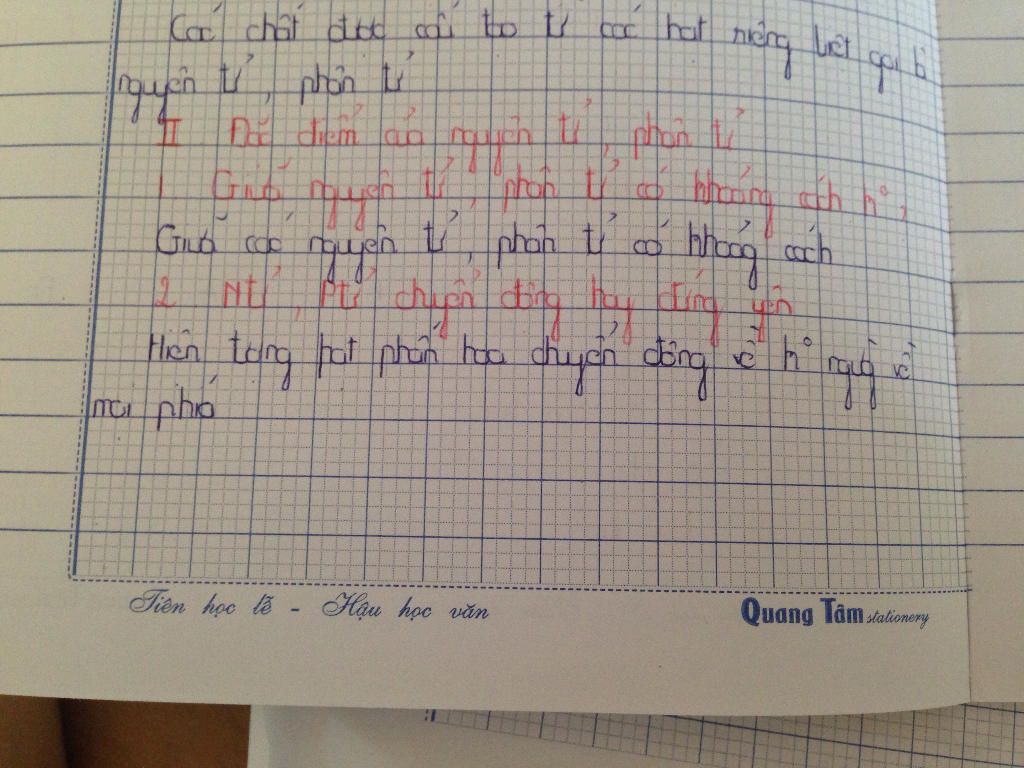 Các chất được cấu tạo từ các hạt riêng biệt gọi là
nguyên tử, phân tử
II Đặc điểm của nguyên tử, phân tử
1 Giữa nguyên tử, phân tử có khoảng cách k°,
Giữa các nguyên tử, phân tử có khoảng cách
2 Ntử, Ptử chuyển động hay đứng yên
Hiện tượng hạt phấn hoa chuyển động về k° ngừng về
mọi phía
Tiên học lễ - Hậu học văn
Quang Tâm stationery